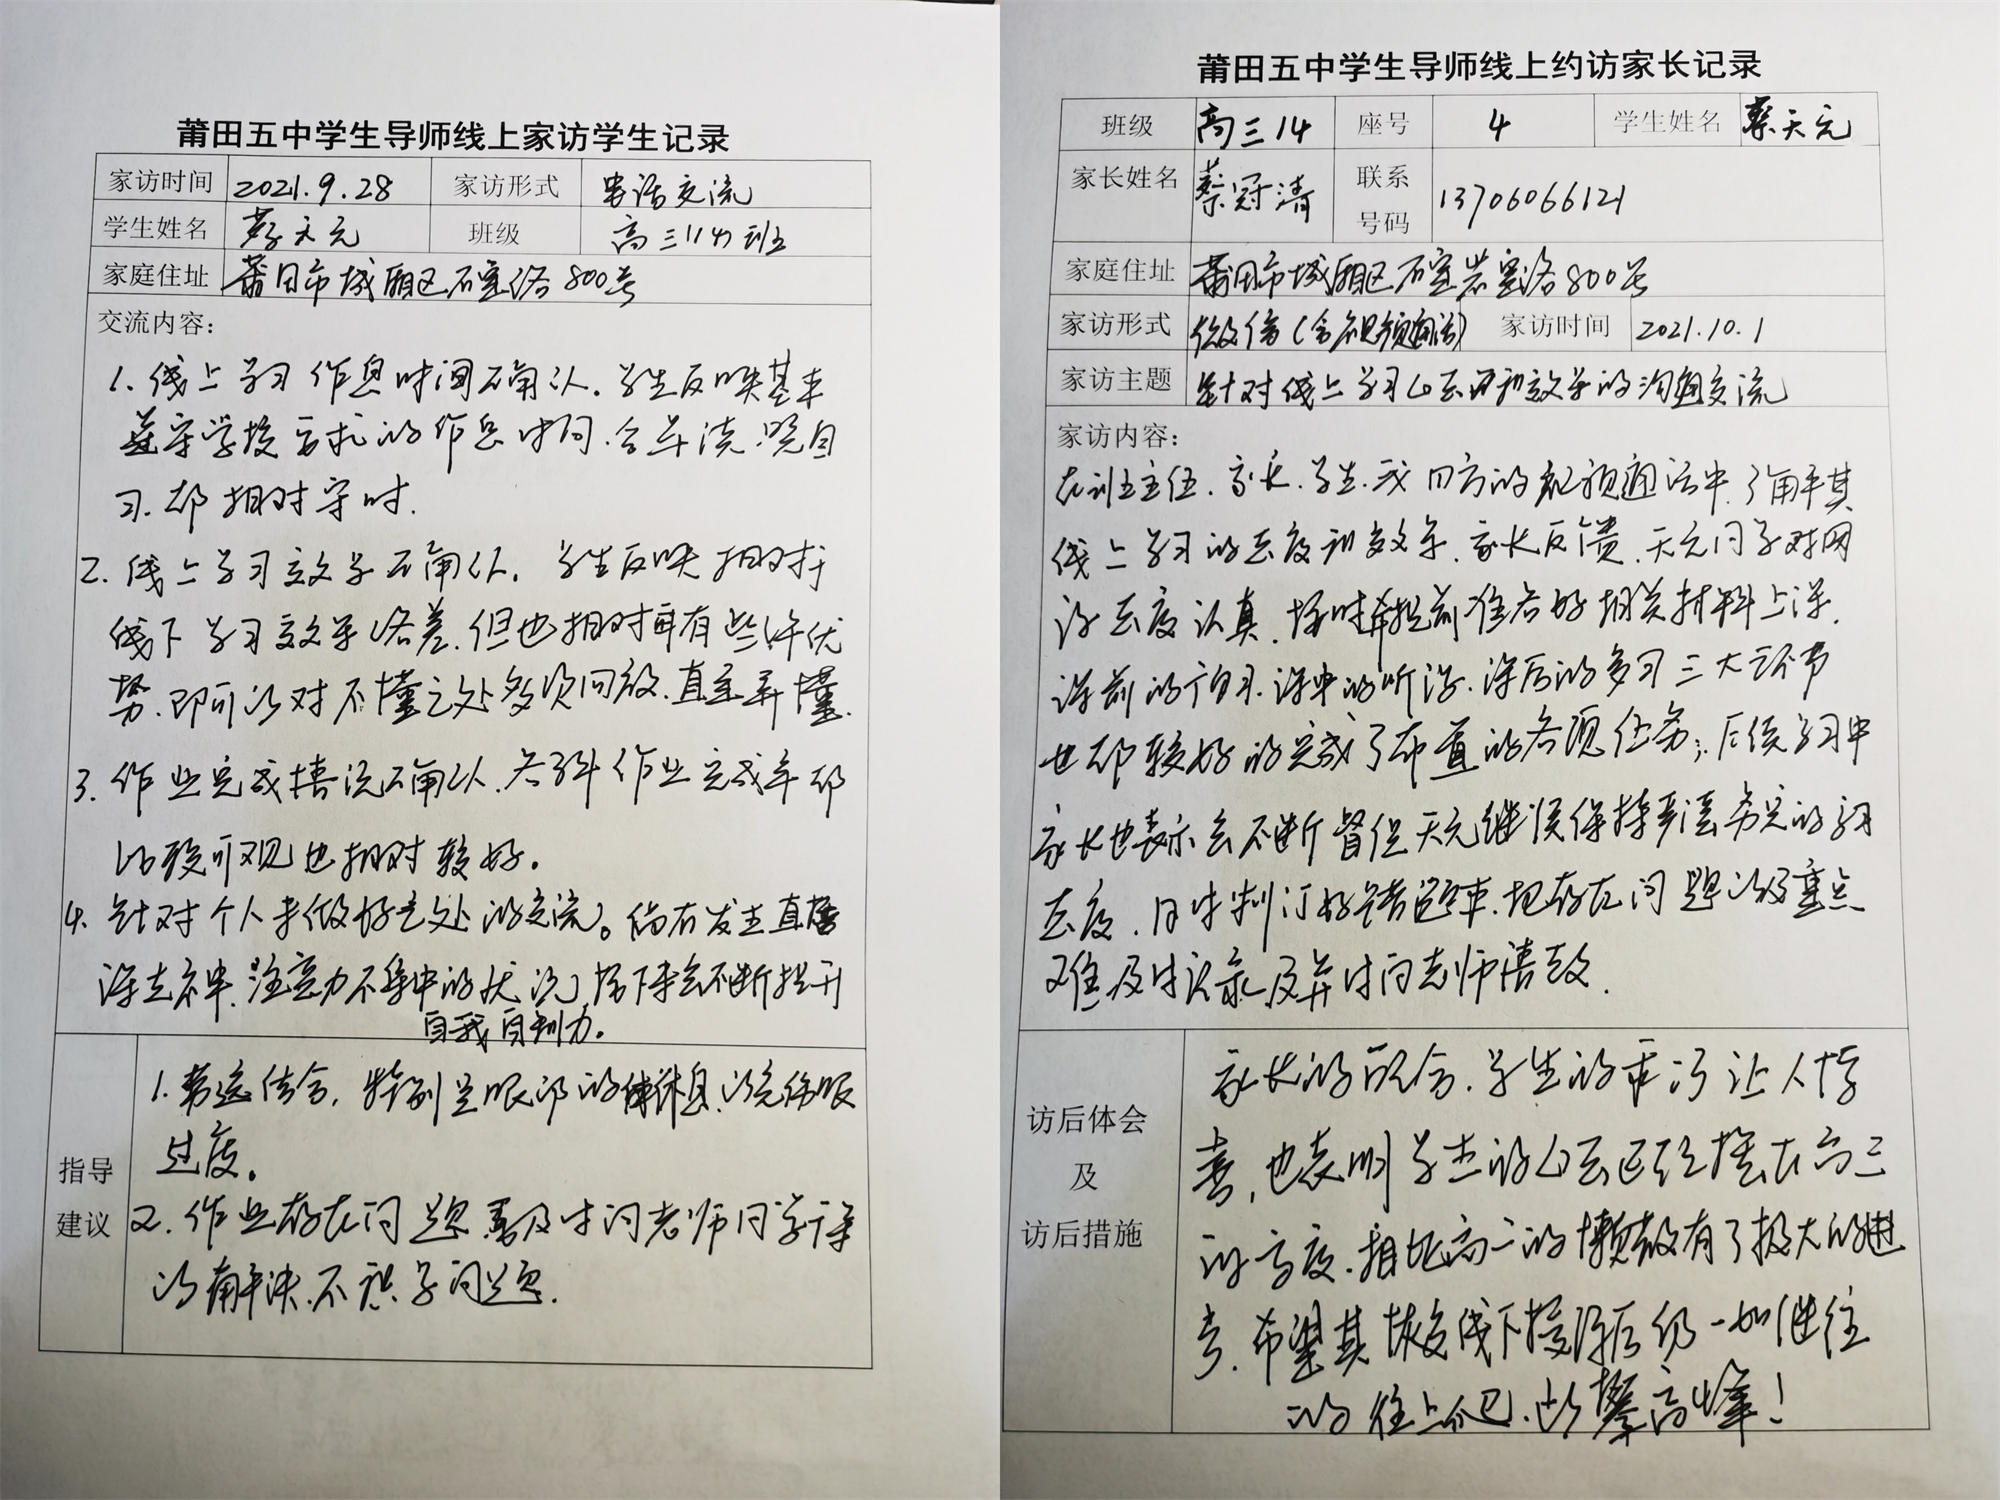 莆田五中学生导师线上家访学生记录
家访时间 2021.9.28 家访形式 电话交流
学生姓名 蔡天元 班级 高三(14)班
家庭住址 莆田市城厢区石室路800号
交流内容：
1. 线上学习作息时间确认. 学生反映基本
遵守学校安排的作息时间. 含早读.晚自
习.都相对守时.
2. 线上学习效率确认. 学生反映相对于
线下学习效率略差.但也相对有些许优
势.即可以对不懂之处多次回放.直至弄懂.
3. 作业完成情况确认.各科作业完成率都
比较可观也相对较好.
4. 针对个人未做好之处的交流。偶有发生直播
课走神.注意力不集中的状况,接下来会不断提升
自我自制力。
指导
建议
1. 劳逸结合, 特别是眼部的休息.以免伤眼
过度。
2. 作业存在问题要及时问老师同学寻
的解决.不积学问题.
莆田五中学生导师线上约访家长记录
班级 高三14 座号 4 学生姓名 蔡天元
家长姓名 蔡冠清 联系
号码 13706066121
家庭住址 莆田市城厢区石室岩室路800号
家访形式 微信(含视频通话) 家访时间 2021.10.1
家访主题 针对线上学习心态和效率的沟通交流
家访内容：
在班主任.家长.学生.我四方的视频通话中.了解其
线上学习的态度和效率.家长反馈.天元同学对网
课态度认真.按时并提前准备好相关材料上课.
课前的预习.课中的听课.课后的复习三大环节
也都较好的完成了布置的各项任务；后续学习中
家长也表示会不断督促天元继续保持严谨务实的学习
态度.同时制订好错题本.把存在问题以及重点
难及时记录及并时向老师请教.
访后体会
及
访后措施
家长的配合.学生的乖巧让人惊
喜,也表明学生的心态已经摆在高三
的高度.相比高一的懒散有了极大的进
步.希望其恢复线下授课后仍一如继往
的往上爬.攀高峰！